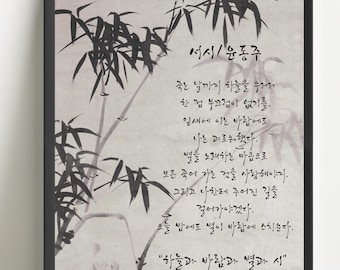 서시/윤동주
죽는 날까지 하늘을 우러러
한 점 부끄럼이 없기를.
잎새에 이는 바람에도
나는 괴로워했다.
별을 노래하는 마음으로
모든 죽어 가는 것을 사랑해야지.
그리고 나한테 주어진 길을
걸어가야겠다.
오늘 밤에도 별이 바람에 스치운다.
"하늘과 바람과 별과 시"